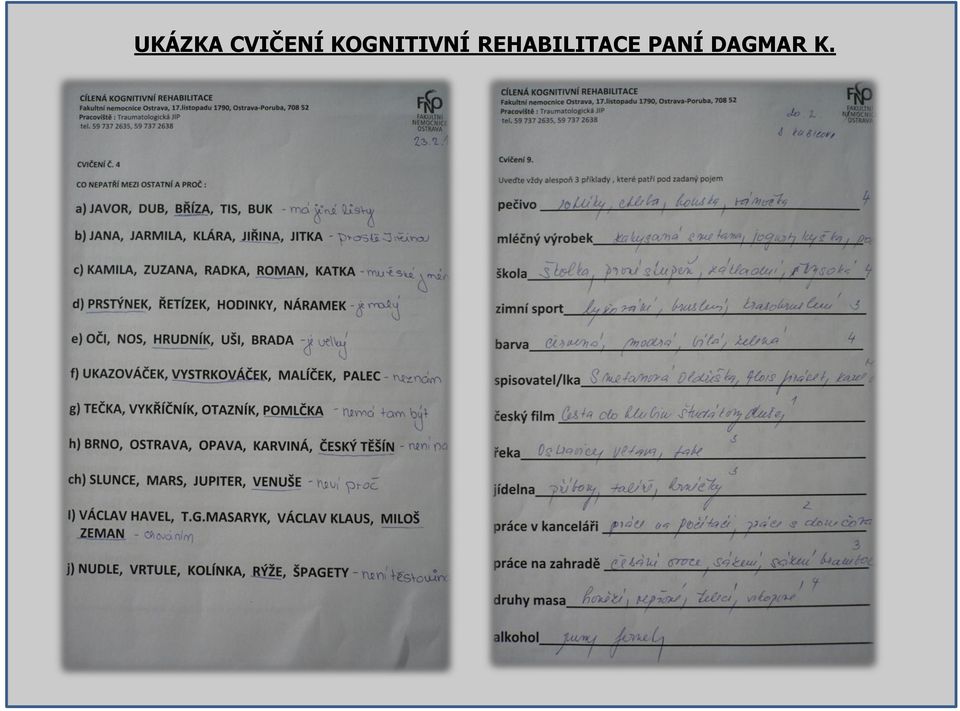 UKÁZKA CVIČENÍ KOGNITIVNÍ REHABILITACE PANÍ DAGMAR K.
CÍLENÁ KOGNITIVNÍ REHABILITACE
Fakultní nemocnice Ostrava, 17.listopadu 1790, Ostrava-Poruba, 708 52
Pracoviště : Traumatologická JIP
tel. 59 737 2635, 59 737 2638
FNO
FAKULTNÍ
NEMOCNICE
OSTRAVA
23.2.
CVIČENÍ Č. 4
CO NEPATŘÍ MEZI OSTATNÍ A PROČ :
a) JAVOR, DUB, BŘÍZA, TIS, BUK - má jiné listy
b) JANA, JARMILA, KLÁRA, JIŘINA, JITKA - prostě Jiřina
c) KAMILA, ZUZANA, RADKA, ROMAN, KATKA - mužské
d) PRSTÝNEK, ŘETÍZEK, HODINKY, NÁRAMEK - je malý
e) OČI, NOS, HRUDNÍK, UŠI, BRADA - je velký
f) UKAZOVÁČEK, VYSTRKOVÁČEK, MALÍČEK, PALEC - neznám
g) TEČKA, VYKŘIČNÍK, OTAZNÍK, POMLČKA - nemá tam být
h) BRNO, OSTRAVA, OPAVA, KARVINÁ, ČESKÝ TĚŠÍN - není na
ch) SLUNCE, MARS, JUPITER, VENUŠE - neví proč
I) VÁCLAV HAVEL, T.G.MASARYK, VÁCLAV KLAUS, MILOŠ
ZEMAN - chováním
j) NUDLE, VRTULE, KOLÍNKA, RÝŽE, ŠPAGETY - není těstovina
CÍLENÁ KOGNITIVNÍ REHABILITACE
Fakultní nemocnice Ostrava, 17.listopadu 1790, Ostrava-Poruba, 708 52
Pracoviště : Traumatologická JIP
tel. 59 737 2635, 59 737 2638
FNO
FAKULTNÍ
NEMOCNICE
OSTRAVA
do 2.
Cvičení 9.
Uveďte vždy alespoň 3 příklady , které patří pod zadaný pojem
pečivo rohlíky, chleba, houska, vánočka 4
mléčný výrobek zakysaná smetana, jogurt, kyška,
škola školka, první stupeň, základní, vysoká 4
zimní sport lyžování, bruslení, krasobruslení 3
barva červená, modrá, bílá, zelená 4
spisovatel/lka Smetanová Oldřiška, Alois
český film Cesta do hlubin študákovy duše, 1
řeka Ostravice, Vltava, Labe 3
jídelna příbory, talíře, hrníčky 3
práce v kanceláři práce na počítači, práce s 2
práce na zahradě česání ovoce, sázení, sázení brambor 3
druhy masa hovězí, vepřové, telecí, 4
alkohol rumy,